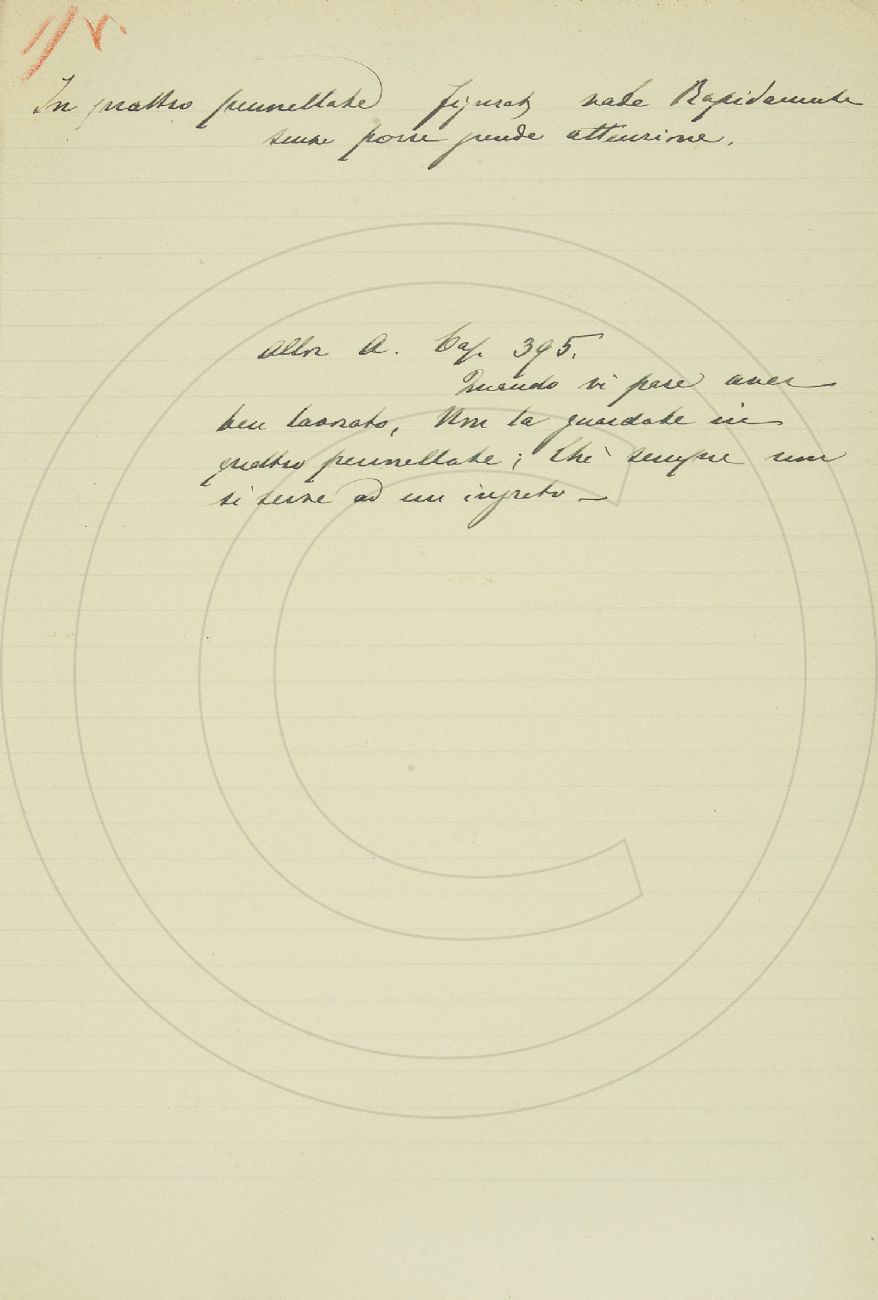 In quattro pennellate figurat vale Rapidamente
senza porre grande attenzione.
Allor A. Cap. 395.
Quando vi pare aver
ben lavorato, Non la guardate in
quattro pennellate; Chè sempre non
si serve ad un ingrato —